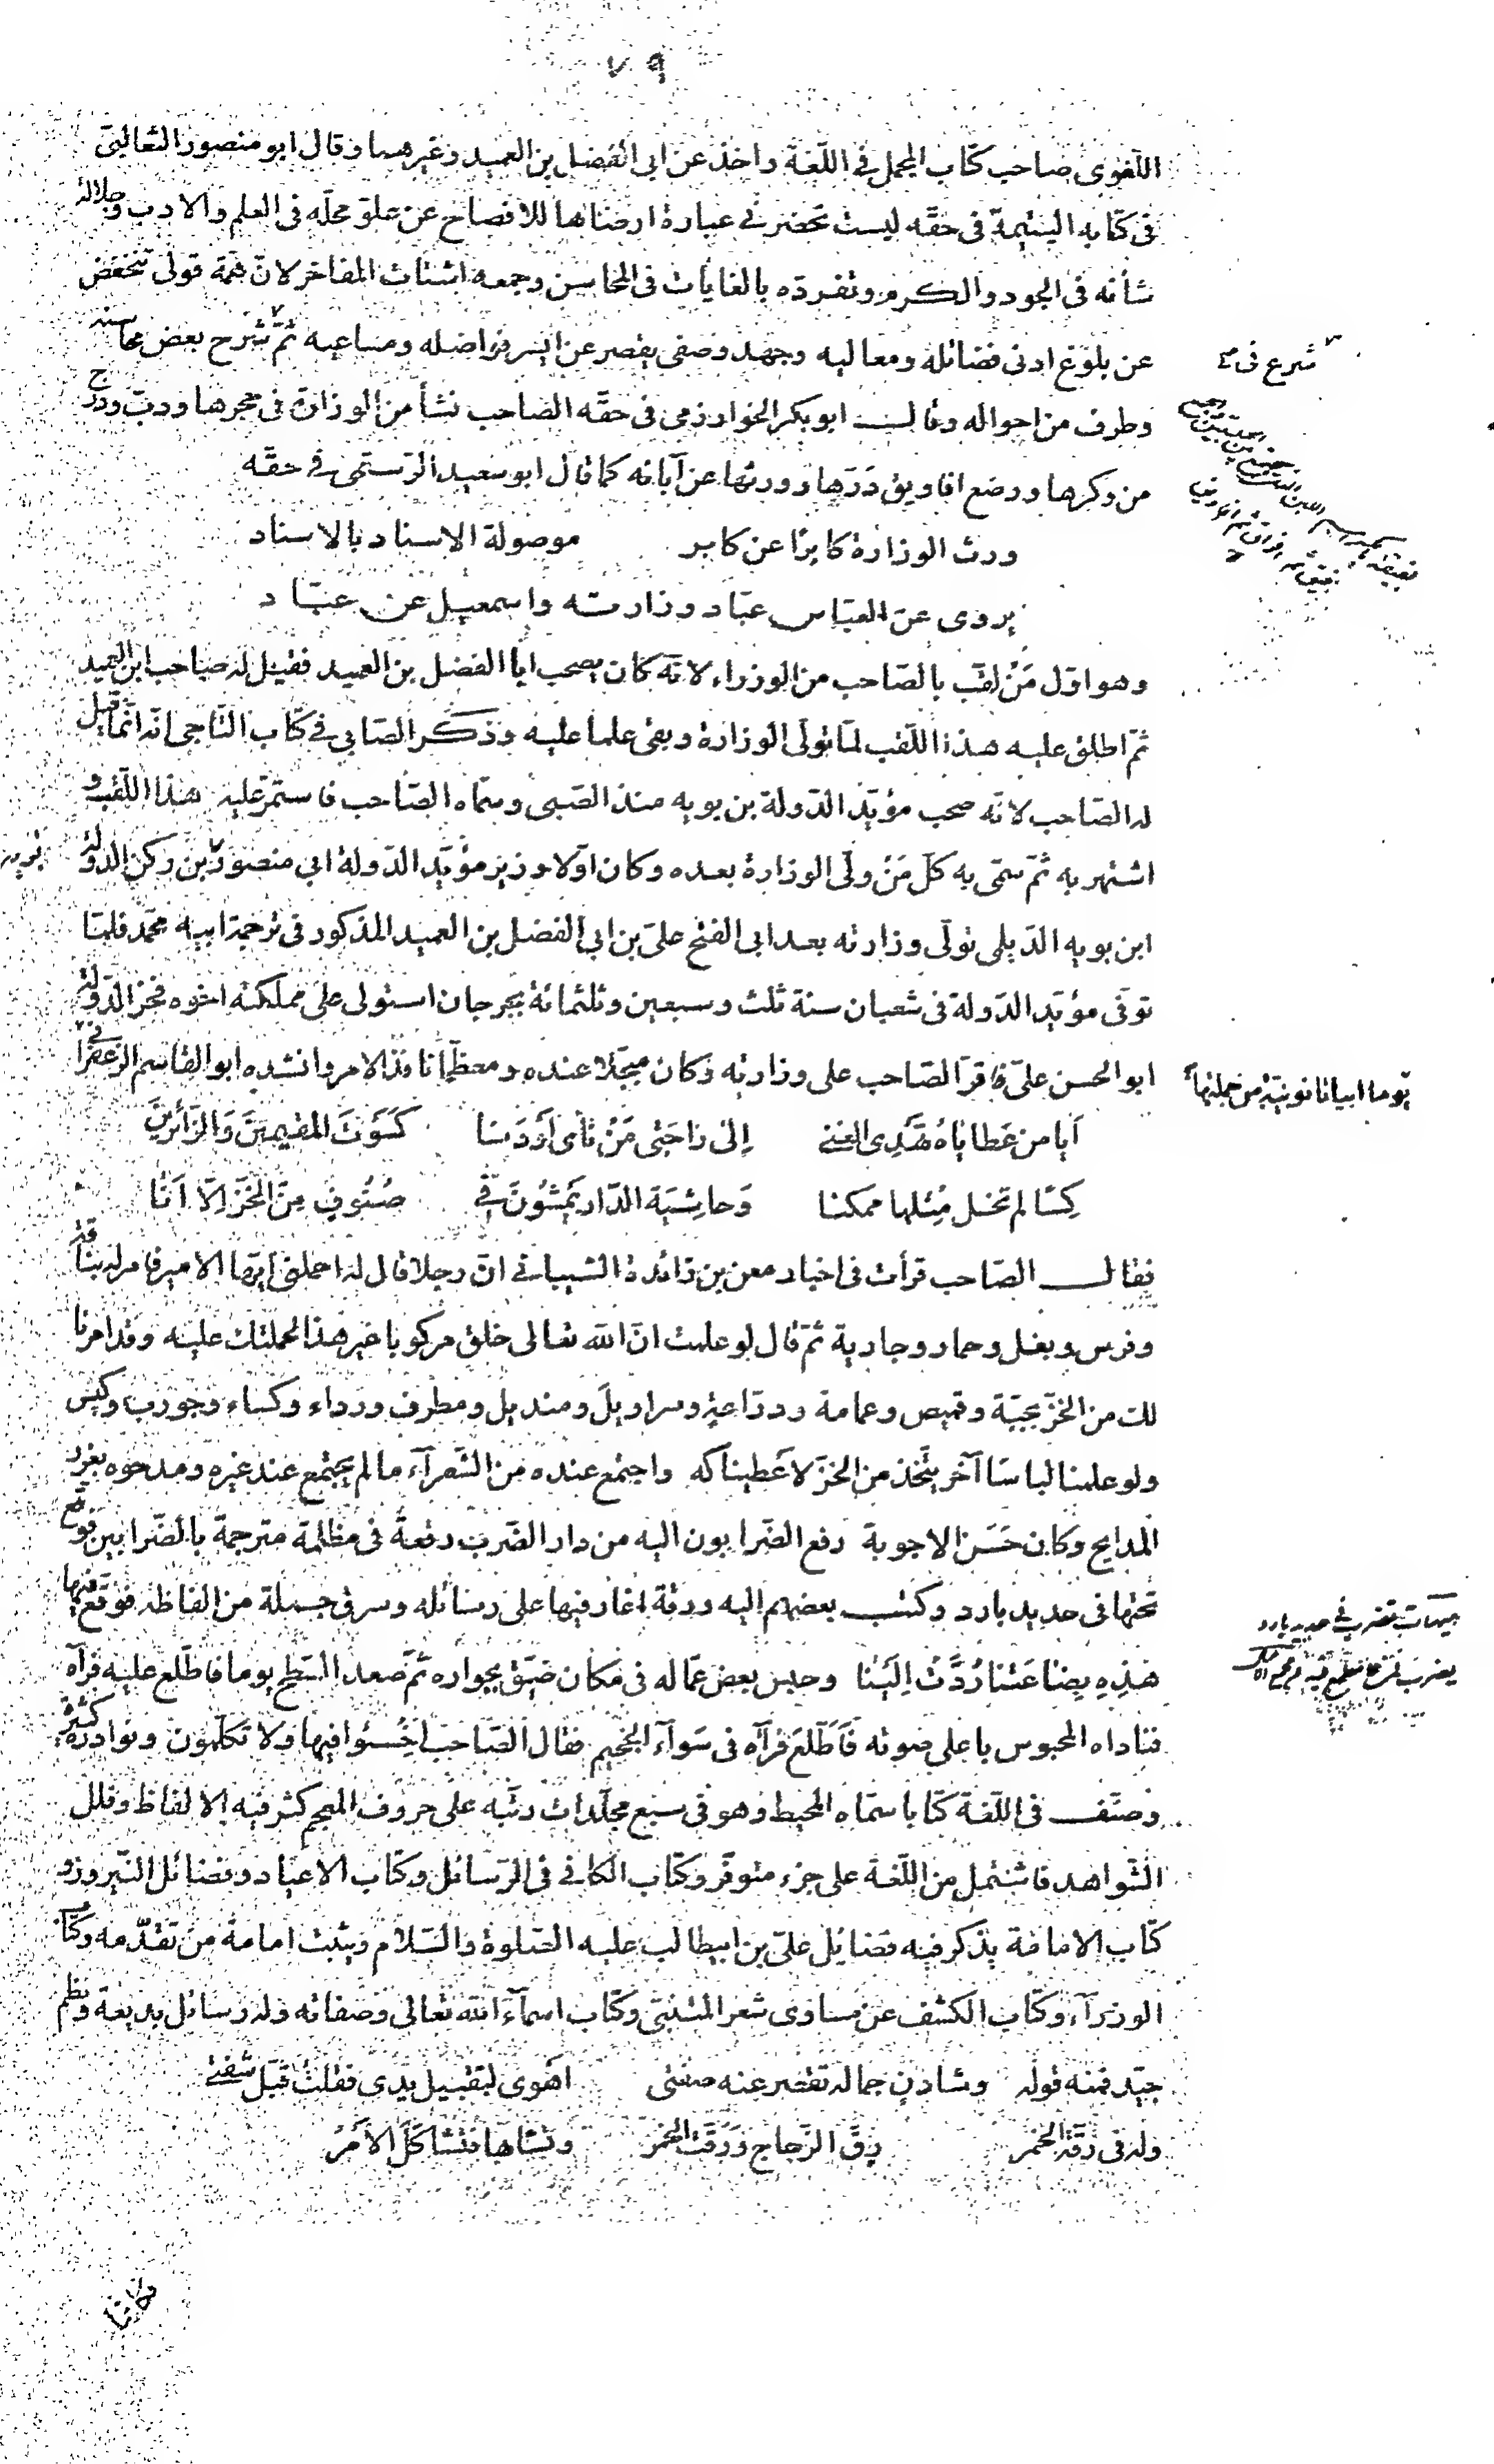 ٧٩
اللّغوى صاحب كتاب المجمل فى اللّغة واخذ عن ابى الفضل بن العميد وغيرهما وقال ابو منصور الثعالبىّ
فى كتابه اليتيمة فى حقّه ليست تحضرنى عبارة ارضاها للافصاح عن علوّ محلّه فى العلم والادب وجلالة
شأنه فى الجود والكرم وتفرده بالغايات فى المحاسن وجمعه اشتات المفاخر لانّ همّة قولى تنخفض
عن بلوغ ادنى فضائله ومعاليه وجهد وصفى يقصر عن ايسر فواضله ومساعيه ثمّ شرح بعض محاسنه
شرع فى
وطرف من احواله وقال ابو بكر الخوارزمى فى حقّه الصّاحب نشأ من الوزارة فى حجرها ودبّ ودرج
من وكرها ورضع افاويق دَرّها وورثها عن آبائه كما قال ابو سعيد الرّستمى فى حقّه
ورث الوزارة كابرًا عن كابر موصولة الاسناد بالاسناد
يروى عن العبّاس عبّاد وزارته واسمعيل عن عبّاد
وهو اوّل مَنْ لقّب بالصّاحب من الوزراء لانّه كان يصحب ابا الفضل بن العميد فقيل له صاحب ابن العميد
ثمّ اطلق عليه هذا اللّقب لمّا تولّى الوزارة وبقى علما عليه وذكر الصّابى فى كتاب التّاجى انّه انّما قيل
له الصّاحب لانّه صحب مؤيّد الدّولة بن بويه منذ الصّبى وسمّاه الصّاحب فاستمرّ عليه هذا اللّقب و
اشتهر به ثمّ سمّى به كلّ مَنْ ولّى الوزارة بعده وكان اوّلا وزير مؤيّد الدّولة ابى منصور بن ركن الدولة
بويه
ابن بويه الدّيلمى تولّى وزارته بعد ابى الفتح علىّ بن ابى الفضل بن العميد المذكور فى ترجمة ابيه محمّد فلمّا
توفّى مؤيّد الدّولة فى شعبان سنة ثلث وسبعين وثلثمائة بجرجان استولى على مملكته اخوه فخر الدّولة
ابو الحسن علىّ فاقرّ الصّاحب على وزارته وكان مبجّلا عنده ومعظّما نافذ الامر وانشده ابو القاسم الزّعفرانى
يوما ابياتا نونيّة من جملتها
اَيا من عَطاياهُ تهدى الغنى اِلى رَاحَتى مَنْ نأى اَوْ دَنا كَسَوتَ المقيمينَ وَالزّائرينَ
كِسًا لم تخل مِثلها ممكنا وَحاشِيَة الدّار يَمْشُونَ فى صُنُوفٍ مِنَ الخَزّ اِلّا اَنَا
فقال الصّاحب قرأت فى اخبار معن بن زائدة الشيبانى انّ رجلا قال له احملنى ايّها الامير فامر له بناقة
وفرس وبغل وحمار وجارية ثمّ قال لو علمت انّ اللّه تعالى خلق مركوبا غير هذا لحملتك عليه وقد امرنا
لك من الخزّ بجبّة وقميص وعمامة ودرّاعة وسراويل ومنديل ومطرف ورداء وكساء وجورب وكيس
ولو علمنا لباسًا آخر يتّخذ من الخزّ لاعطيناكه واجتمع عنده من الشّعرآء ما لم يجتمع عند غيره ومدحوه بغرر
المدايح وكان حَسَن الاجوبة رفع الضّرابون اليه من دار الضّرب رقعةً فى مظلمة مترجمة بالضّرابين فوقّع
تحتها فى حديد بارد وكتب بعضهم اليه ورقة اغار فيها على رسائله وسرق جملة من الفاظه فوقّع فيها
هيهات تضرب فى حديد بارد
هذِهِ بِضَاعَتنا رُدَّتْ اِلَيْنا وحبس بعض عمّاله فى مكان ضيّق بجواره ثمّ صعد السّطح يوما فاطّلع عليه فرآه
فناداه المحبوس باعلى صوته فَاطَّلَعَ فَرآه فى سَوآء الجَحيم فقال الصّاحب اخسئوا فيها ولا تكلّمون ونوادره كثيرة
وصنّف فى اللّغة كتابا سمّاه المحيط وهو فى سبع مجلّدات رتّبه على حروف المعجم كثر فيه الالفاظ وقلل
الشّواهد فاشتمل من اللّغة على جزء متوفّر وكتاب الكافى فى الرّسائل وكتاب الاعياد وفضائل النّيروز و
كتاب الامامة يذكر فيه فضائل علىّ بن ابيطالب عليه الصّلوة والسّلام ويثبت امامة من تقدّمه وكتاب
الوزرآء وكتاب الكشف عن مساوى شعر المتنبّى وكتاب اسمآء اللّه تعالى وصفاته وله رسائل بديعة ونظم
جيّد فمنه قوله وشادنٍ جماله تقصر عنه صفتى اهوى لتقبيل يدى فقلت قبّل شفتى
وله فى رقّة الخمر رقّ الزّجاج ورقّت الخمر وتشابها فتشاكل الاَمرُ
فكانما